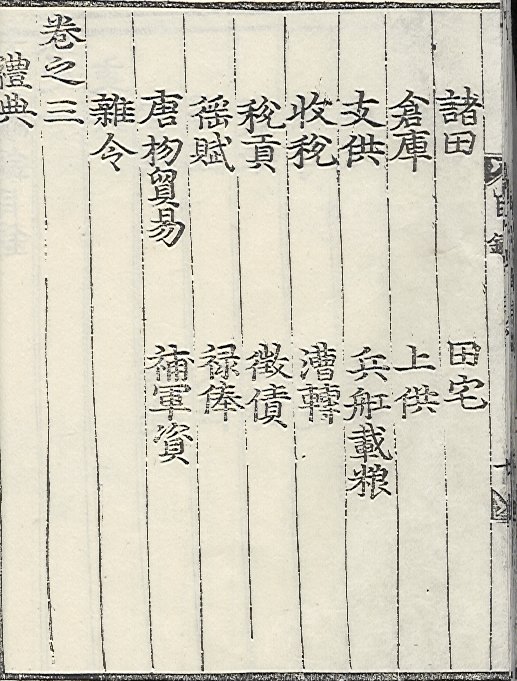 目錄
諸田 田宅
倉庫 上供
支供 兵舡載粮
收稅 漕轉
稅貢 徵債
徭賦 祿俸
唐物貿易 補軍資
雜令
卷之三
禮典